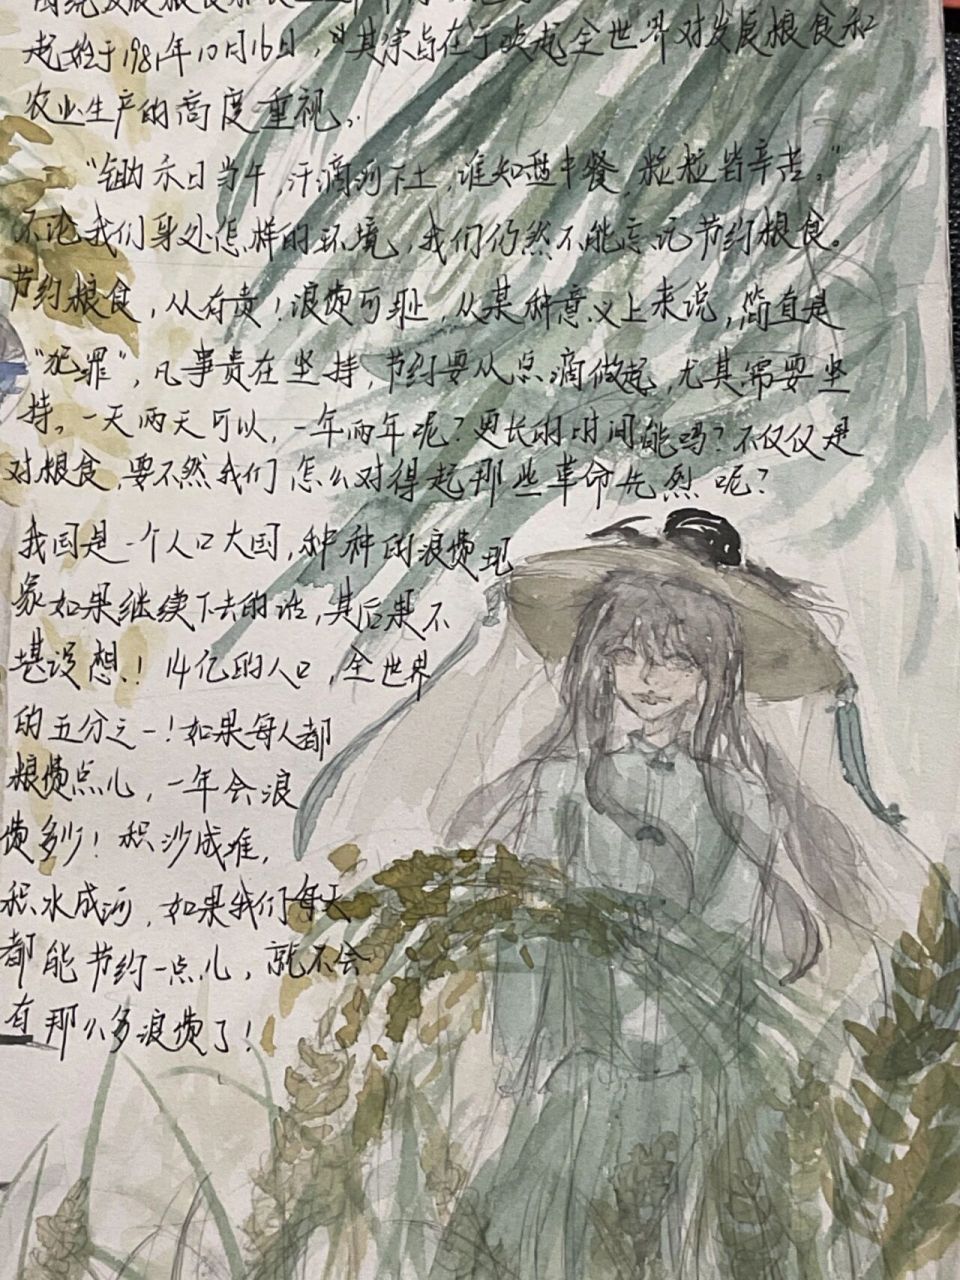 围绕发展粮食和农业生产
起始于1981年10月16日,"其宗旨在于唤起全世界对发展粮食和
农业生产的高度重视。
"锄禾日当午,汗滴河下土,谁知盘中餐,粒粒皆辛苦。"
不论我们身处怎样的环境,我们仍然不能忘记节约粮食。
节约粮食,从有责!浪费可耻,从某种意义上来说,简直是
"犯罪",凡事贵在坚持,节约要从点滴做起,尤其需要坚
持。一天两天可以,一年两年呢?更长的时间能吗?不仅仅是
对粮食,要不然我们怎么对得起那些革命先烈呢?
我国是一个人口大国,种种的浪费现
象如果继续下去的话,其后果不
堪设想!14亿的人口,全世界
的五分之一!如果每人都
粮费点儿,一年会浪
费多少!积沙成堆,
积水成河,如果我们每天
都能节约一点儿,就不会
有那么多浪费了!